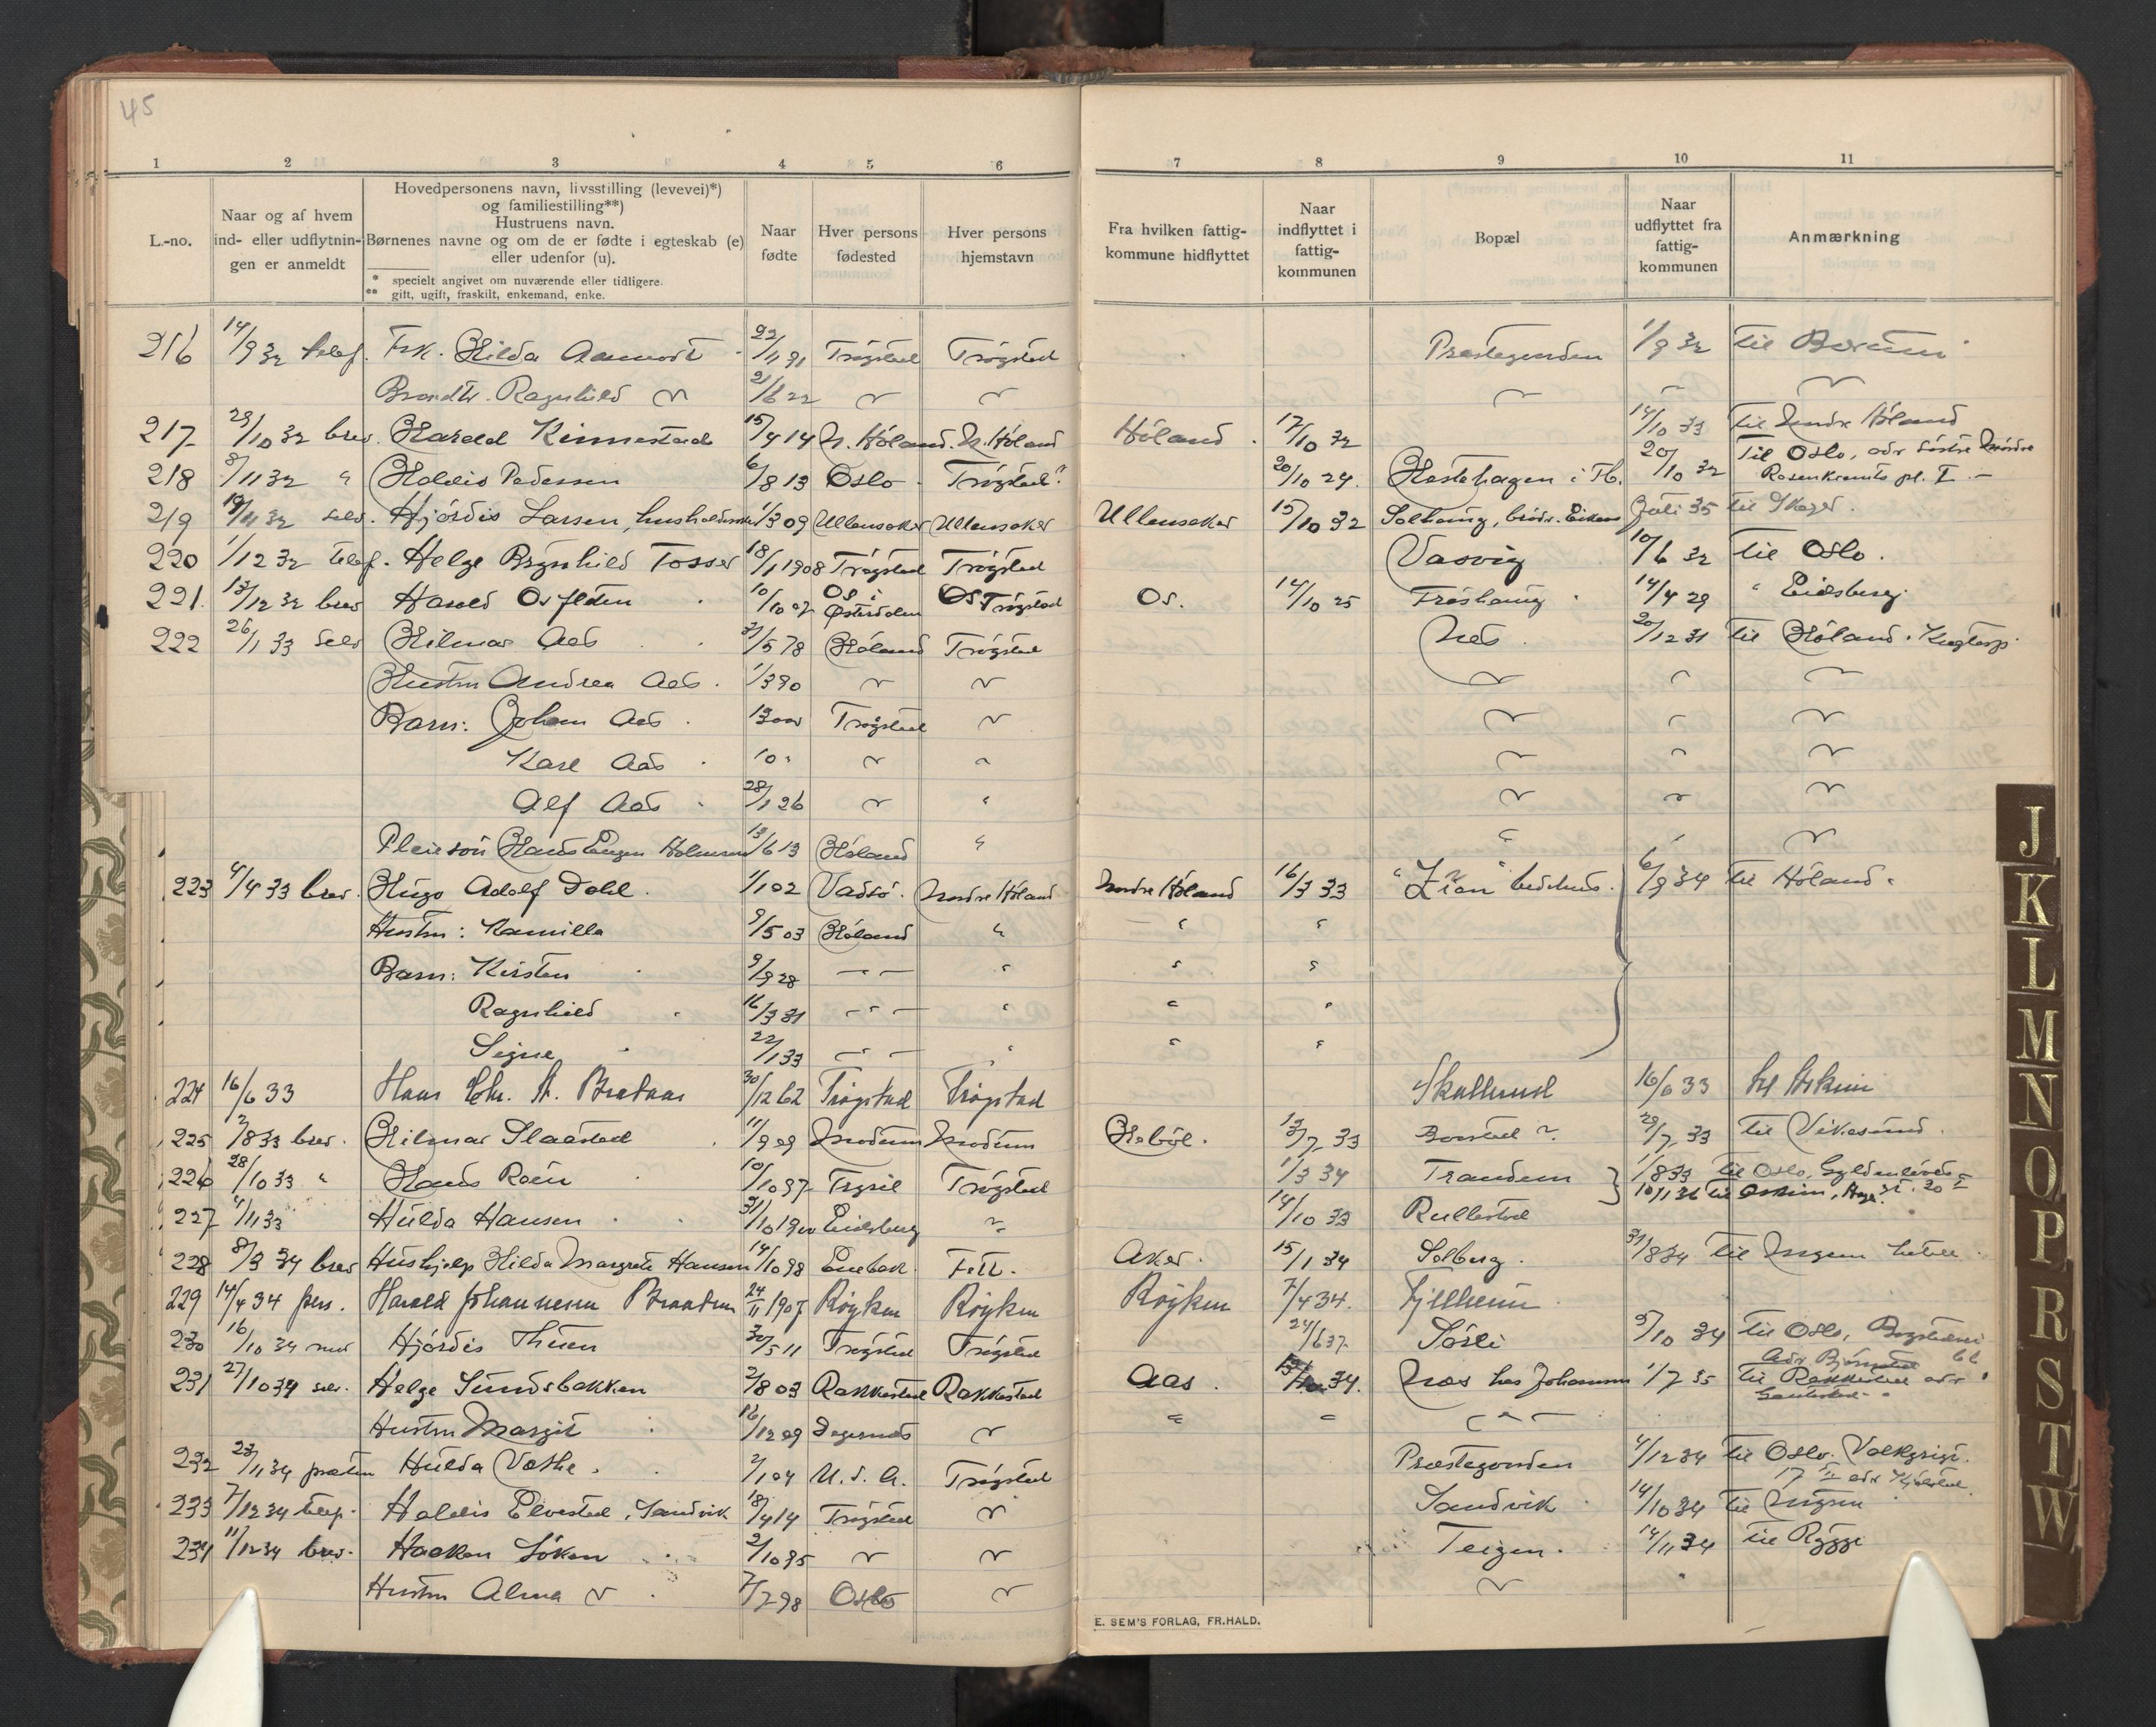 45
1 2 3 4 5 6 7 8 9 10 11
L.-no.
Naar og af hvem
ind- eller udflytnin-
gen er anmeldt
Hovedpersonens navn, livsstilling (levevei)*)
og familiestilling**)
Hustruens navn.
Børnenes navne og om de er fødte i egteskab (e)
eller udenfor (u).
* specielt angivet om nuværende eller tidligere.
** gift, ugift, fraskilt, enkemand, enke.
Naar
fødte
Hver persons
fødested
Hver persons
hjemstavn
Fra hvilken fattig-
kommune hidflyttet
Naar
indflyttet i
fattig-
kommunen
Bopæl
Naar
udflyttet fra
fattig-
kommunen
Anmærkning
216 14/9 32 telef. Frk. Hilda Aamodt 22/11 91 Trøgstad Trøgstad Prestegarden 1/9 32 til Berum
Ragnhild 21/6 22
217 29/10 32 brev. Harald Kinnestad 15/4 14 N. Høland. N. Høland Høland 17/10 32 14/10 33 til Søndre Høland
218 8/11 32 " Haldis Pedersen 6/8 13 Oslo Trøgstad? 20/10 29 Hestehagen i Tb. 20/10 32 Til Oslo, adr Søstre
Rosenkrants pl. I
219 19/11 32 selv. Hjørdis Larsen, husholderske 1/3 09 Ullensaker Ullensaker Ullensaker 15/10 32 Solhaug, brdr. Eiken Juli 35 til
220 1/12 32 telef. Helge Brynhild Fosser 18/1 1908 Trøgstad Trøgstad Vasvig 10/6 32 til Oslo.
221. 13/12 32 brev Harald Osflaten 10/10 07 Os i Østerdalen Os Trøgstad Os. 14/10 25 Frøshaug 14/4 29 " Eidsberg
222 26/1 33 selv Hilmar Aas 31/5 78 Høland Trøgstad Nes 20/12 31 til Høland.
Hustru Andrea Aas. 1/3 90
Barn: Johan Aas Trøgstad
Kare Aas 10
Alf Aas 28/1 26
Pleiesøn Hans Eugen 13/6 13 Høland "
223 4/4 33 brev. Hugo Adolf Dahl. 1/1 02 Vadsø. Nordre Høland Nordre Høland 16/3 33 "Zion" bedehus. 6/9 34 til Høland.
Hustru: Kamilla 9/5 03 Høland " " "
Barn: Kirsten 9/9 28 — — " " "
Ragnhild 16/3 31 — " — " " "
Signe 22/1 33 — " — " " "
224 16/6 33 Hans Chr. A. Brataas 30/12 62 Trøgstad Trøgstad Skallerud 16/6 33 til Askim
225 /8 33 brev. Hilmar Slaastad 11/9 09 Modum Modum Hobøl. 13/7 33 29/7 33 til Vikesund.
226 28/10 33 " Hans Roen 10/10 97 Trysil Trøgstad 1/3 34 Trandem 1/8 33 til Oslo, Gyldenløves
10/1 36 til Askim,
227 4/11 33 Hulda Hansen 31/10 1900 Eidsberg 14/10 33 Rullestad
228 8/3 34 brev Hushjelp Hilda Margrete Hansen 14/10 98 Enebak Fett. Aker. 15/1 34 Solberg. 31/8 34 til Mysen
229 14/4 34 pers. Harald Johannesen 24/11 1907 Røyken Røyken Røyken 7/4 34. Fjellheim
230 16/10 34 Hjørdis Thuen 30/5 11 Trøgstad Trøgstad 24/6 37 Sørli 5/10 34 til Oslo,
231 27/10 34 selv. Helge Sundsbakken 2/8 03 Rakkestad Rakkestad Aas. 34. Næs hos Johansen 1/7 35 til Rakkestad adr
Hustru Margit 16/12 09 Degernes
232 23/11 34 Hulda Vestbe. 2/1 04 U.S.A. Trøgstad Prestegarden 4/12 34 til Oslo.
233 7/12 34 telef. Haldis Elvestad, Sandvik 18/4 14 Trøgstad Sandvik 14/10 34 til Mysen
234 11/12 34 brev. Haaken Løken 2/10 95 Teigen. 14/11 34 til Rygge
Hustru Alma 7/7 98 Oslo
E. SEM'S FORLAG, FR.HALD.
J
K
L
M
N
O
P
R
S
T
W